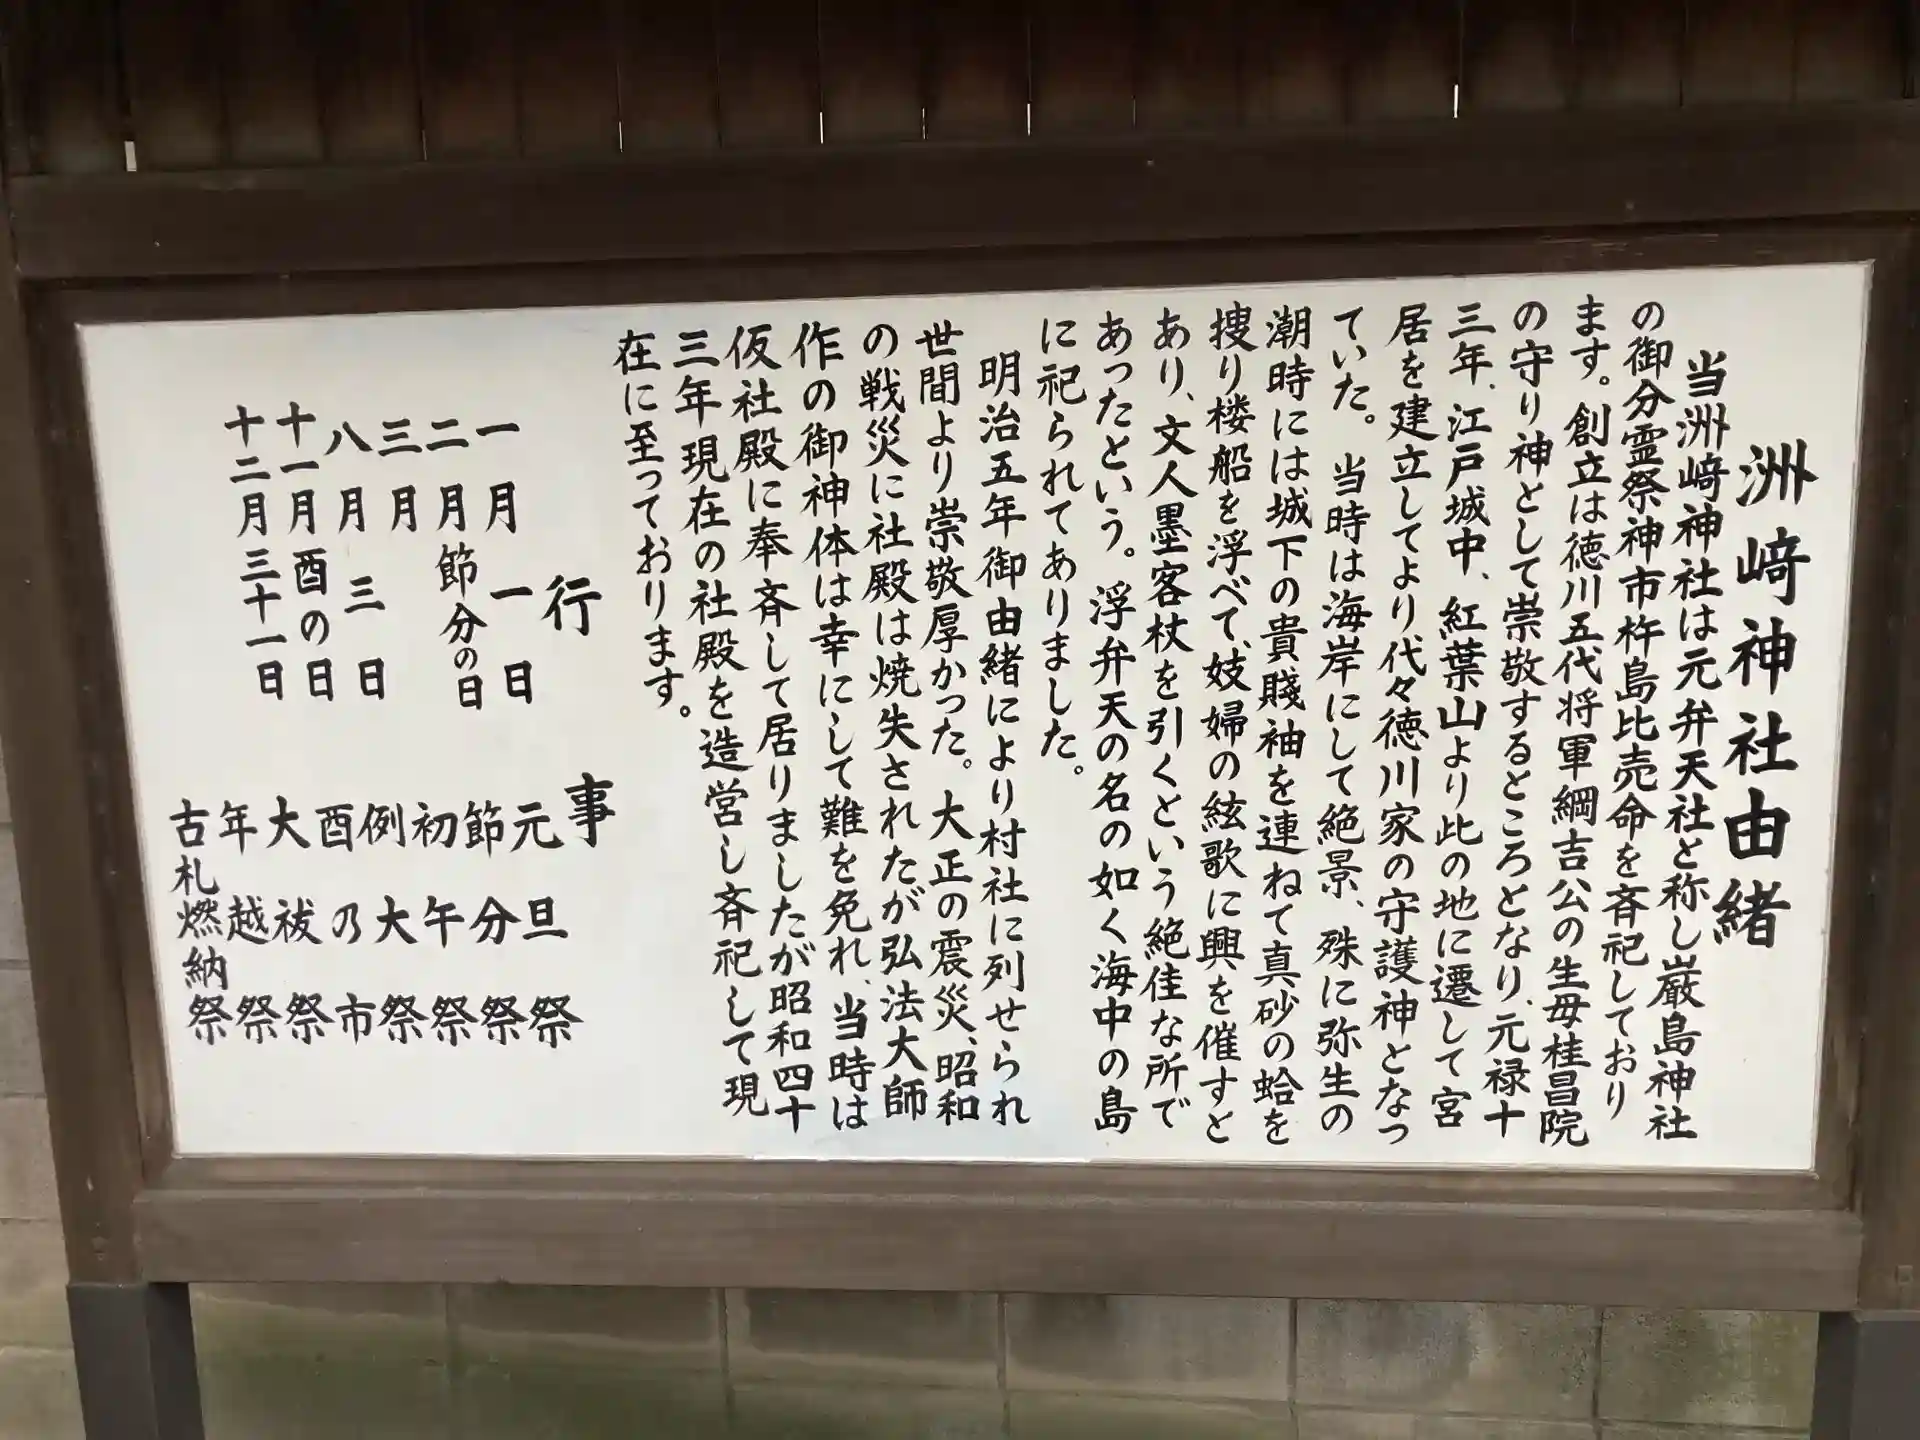 洲﨑神社由緒
当洲﨑神社は元弁天社と称し巌島神社
の御分霊祭神市杵島比売命を斉祀しており
ます。創立は徳川五代将軍綱吉公の生母桂昌院
の守り神として崇敬するところとなり、元禄十
三年、江戸城中、紅葉山より此の地に遷して宮
居を建立してより代々徳川家の守護神となっ
ていた。当時は海岸にして絶景、殊に弥生の
潮時には城下の貴賤袖を連ねて真砂の蛤を
捜り楼船を浮べて、妓婦の絃歌に興を催すと
あり、文人墨客杖を引くという絶佳な所で
あったという。浮弁天の名の如く海中の島
に祀られてありました。
明治五年御由緒により村社に列せられ
世間より崇敬厚かった。大正の震災、昭和
の戦災に社殿は焼失されたが弘法大師
作の御神体は幸にして難を免れ、当時は
仮社殿に奉斉して居りましたが昭和四十
三年現在の社殿を造営し斉祀して現
在に至っております。
行事
一月一日 元旦祭
二月節分の日 節分祭
三月 初午祭
八月三日 例大祭
十一月酉の日 酉の市
十二月三十一日 大祓祭
年越祭
古札燃納祭